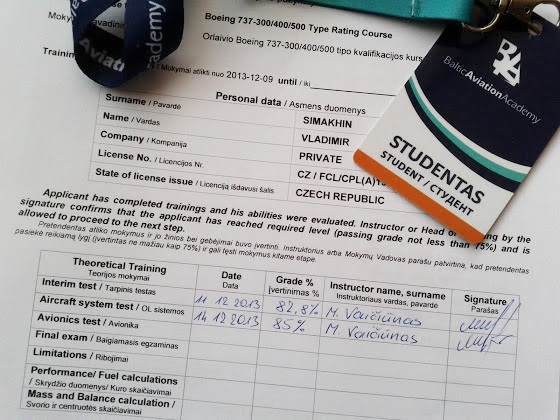 Mok
Boeing 737-300/400/500 Type Rating Course
Orlaivio Boeing 737-300/400/500 tipo kvalifikacijos kurs
Training
/ Mokymai atlikti nuo 2013-12-09 until / iki
Aviation
Academy
BAA
BalticAviationAcademy
STUDENTAS
STUDENT / СТУДЕНТ
Personal data / Asmens duomenys
Surname / Pavardė SIMAKHIN
Name / Vardas VLADIMIR
Company / Kompanija PRIVATE
License No. / Licencijos Nr. CZ / FCL/CPL(A)10
State of license issue / Licenciją išdavusi šalis CZECH REPUBLIC
Applicant has completed trainings and his abilities were evaluated. Instructor or Head of Training by the
signature confirms that the applicant has reached required level (passing grade not less than 75%) and is
allowed to proceed to the next step.
Pretendentas atliko mokymus ir jo žinios bei gebėjimai buvo įvertinti. Instruktorius arba Mokymų Vadovas parašu patvirtina, kad pretendentas
pasiekė reikiamą lygį (įvertintas ne mažiau kaip 75%) ir gali tęsti mokymus kitame etape.
Theoretical Training Date Grade % Instructor name, surname Signature
Teorijos mokymai Data Įvertinimas % Instruktoriaus vardas, pavardė Parašas
Interim test / Tarpinis testas
Aircraft system test / OL sistemos 11 12 2013 82,8% M. Vaičiūnas
Avionics test / Avionika 14 12 2013 85% M. Vaičiūnas
Final exam / Baigiamasis egzaminas
Limitations / Ribojimai
Performance/ Fuel calculations
/ Skrydžio duomenys/ Kuro skaičiavimai
Mass and Balance calculation /
Svorio ir centruotės skaičiavimai